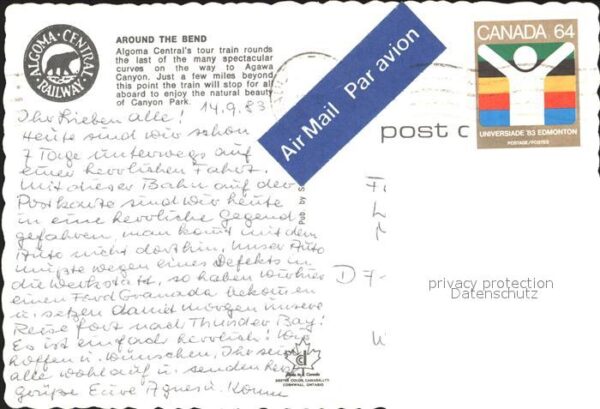 ALGOMA CENTRAL RAILWAY
AROUND THE BEND
Algoma Central's tour train rounds
the last of the many spectacular
curves on the way to Agawa
Canyon. Just a few miles beyond
this point the train will stop for all
aboard to enjoy the natural beauty
of Canyon Park.
14.9.83
Ihr Lieben alle!
Heute sind wir schon
7 Tage unterwegs auf
einer herrlichen Fahrt.
Mit dieser Bahn auf der
Postkarte sind wir heute
in eine herrliche Gegend
gefahren, man kommt mit dem
Auto nicht dorthin. Unser Auto
mußte wegen eines Defekts in
die Werkstatt, so haben wir
einen Ford Granada bekommen
u. setzen damit morgen unsere
Reise fort nach Thunder Bay!
Es ist einfach herrlich! Wir
hoffen u. wünschen, Ihr seid
alle wohlauf u. senden
grüße Eure Agnes u.
Air Mail Par avion
CANADA 64
UNIVERSIADE '83 EDMONTON
POSTAGE/POSTES
post c
Pub. by S
D 7-
privacy protection
Datenschutz
CORNWALL, ONTARIO